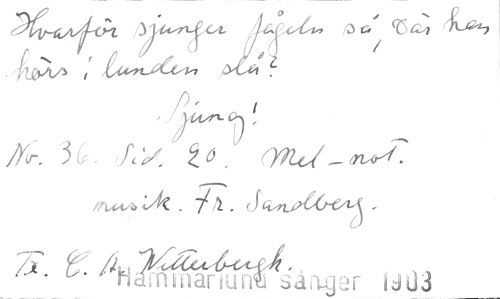 Hvarför sjunger fågeln så, där han
hörs i lunden slå?
Sjung!
No. 36. Sid. 20. Mel-not.
musik. Fr. Sandberg.
Te. C. A. Witterbergk.
Hammarlund sånger 1903